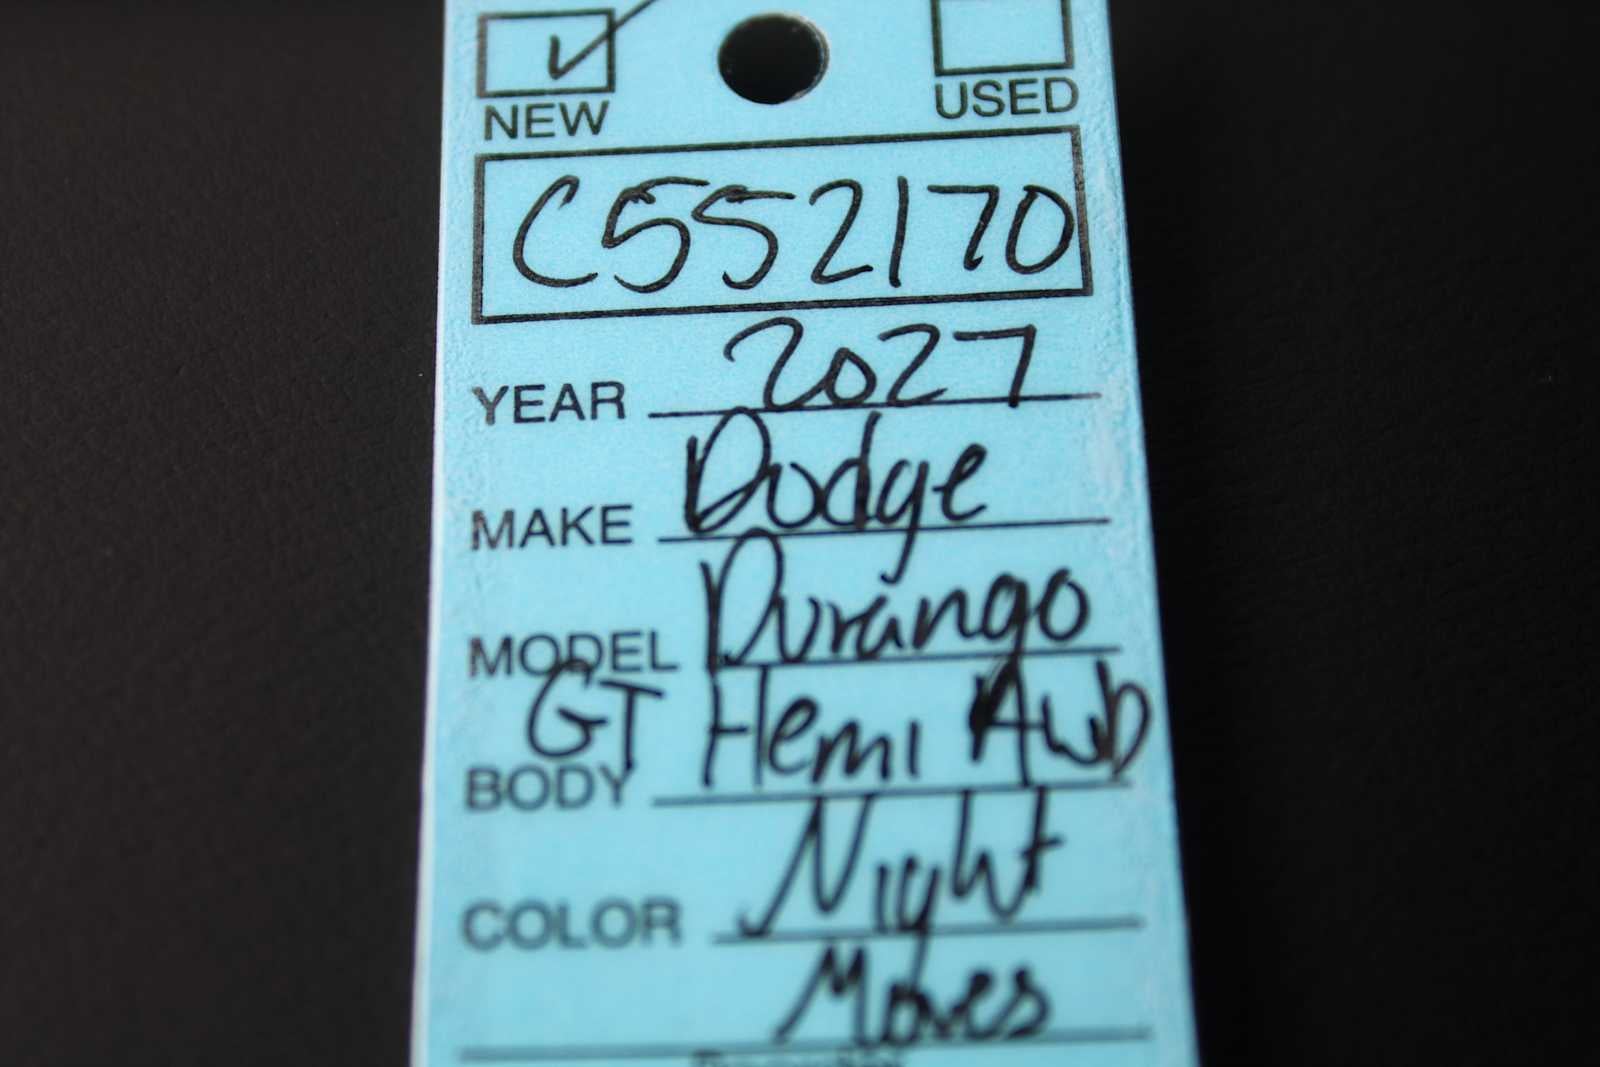 NEW USED
C552170
YEAR 2027
MAKE Dodge
MODEL Durango
BODY GT Hemi AWD
COLOR Night
Moves